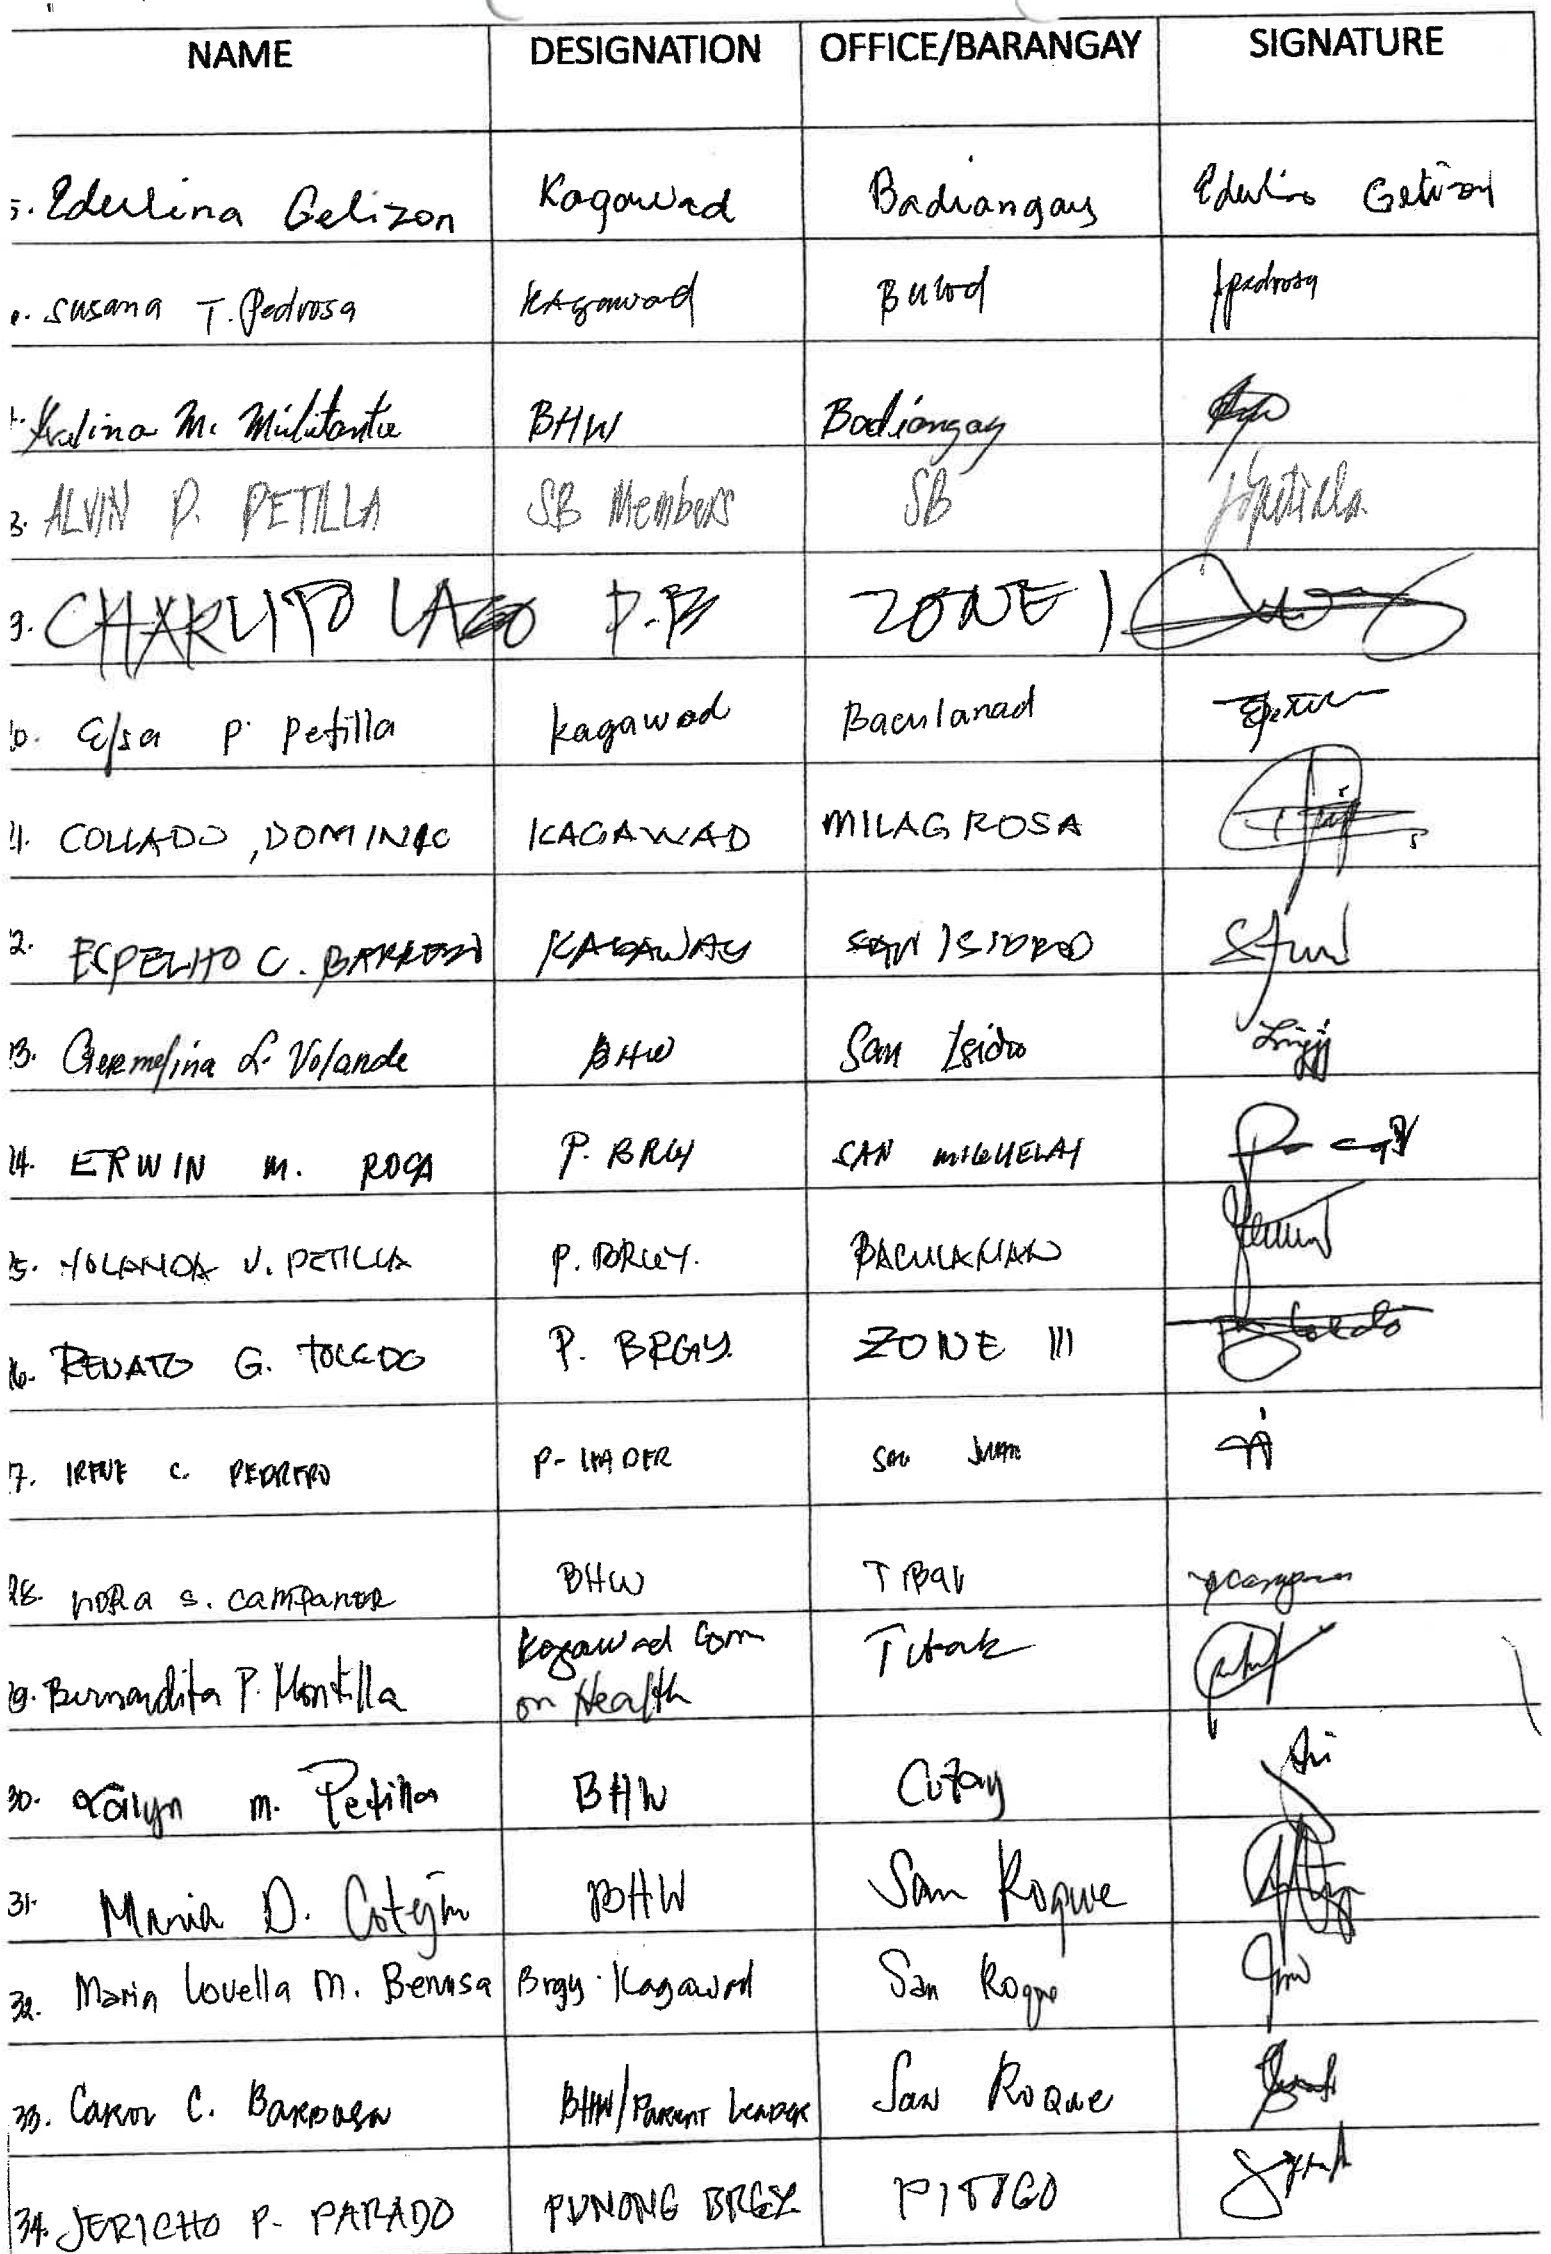 NAME DESIGNATION OFFICE/BARANGAY SIGNATURE
5. Edulina Gelizon Kagawad Badiangay Gelizon
Susana T. Pedrosa Kagawad Bulod Spedrosa
M. Militante BHW Badiangay
8. ALVIN P. PETILLA SB Members SB
9. CHARLITO LAGO P.B ZONE 1
10. Elsa P. Petilla Kagawad Baculanad
11. COLLADO, DOMINIC KAGAWAD MILAGROSA
12. ESPELITO C. KAGAWAD SAN ISIDRO
13. Germelina L. Volande BHW San Isidro
14. ERWIN M. ROCA P. BRGY SAN MIGUELAY
15. YOLANDA V. PETILLA P. BRGY.
16. RENATO G. TOLEDO P. BRGY. ZONE III
17. IRENE C. PEDRERO P-LEADER San Juan
28. NORA S. CAMPANER BHW TIBAK
29. Bernardita P. Montilla Kagawad Com Tibak
on Health
30. M. Petilla BHW Cutay
31. Maria D. BHW San Roque
32. Maria Lovella M. Benusa Brgy. Kagawad San Roque
33. Carol C. Barbosa BHW/PARENT LEADER San Roque
34. JERICHO P. PARADO PUNONG BRGY. PITOGO